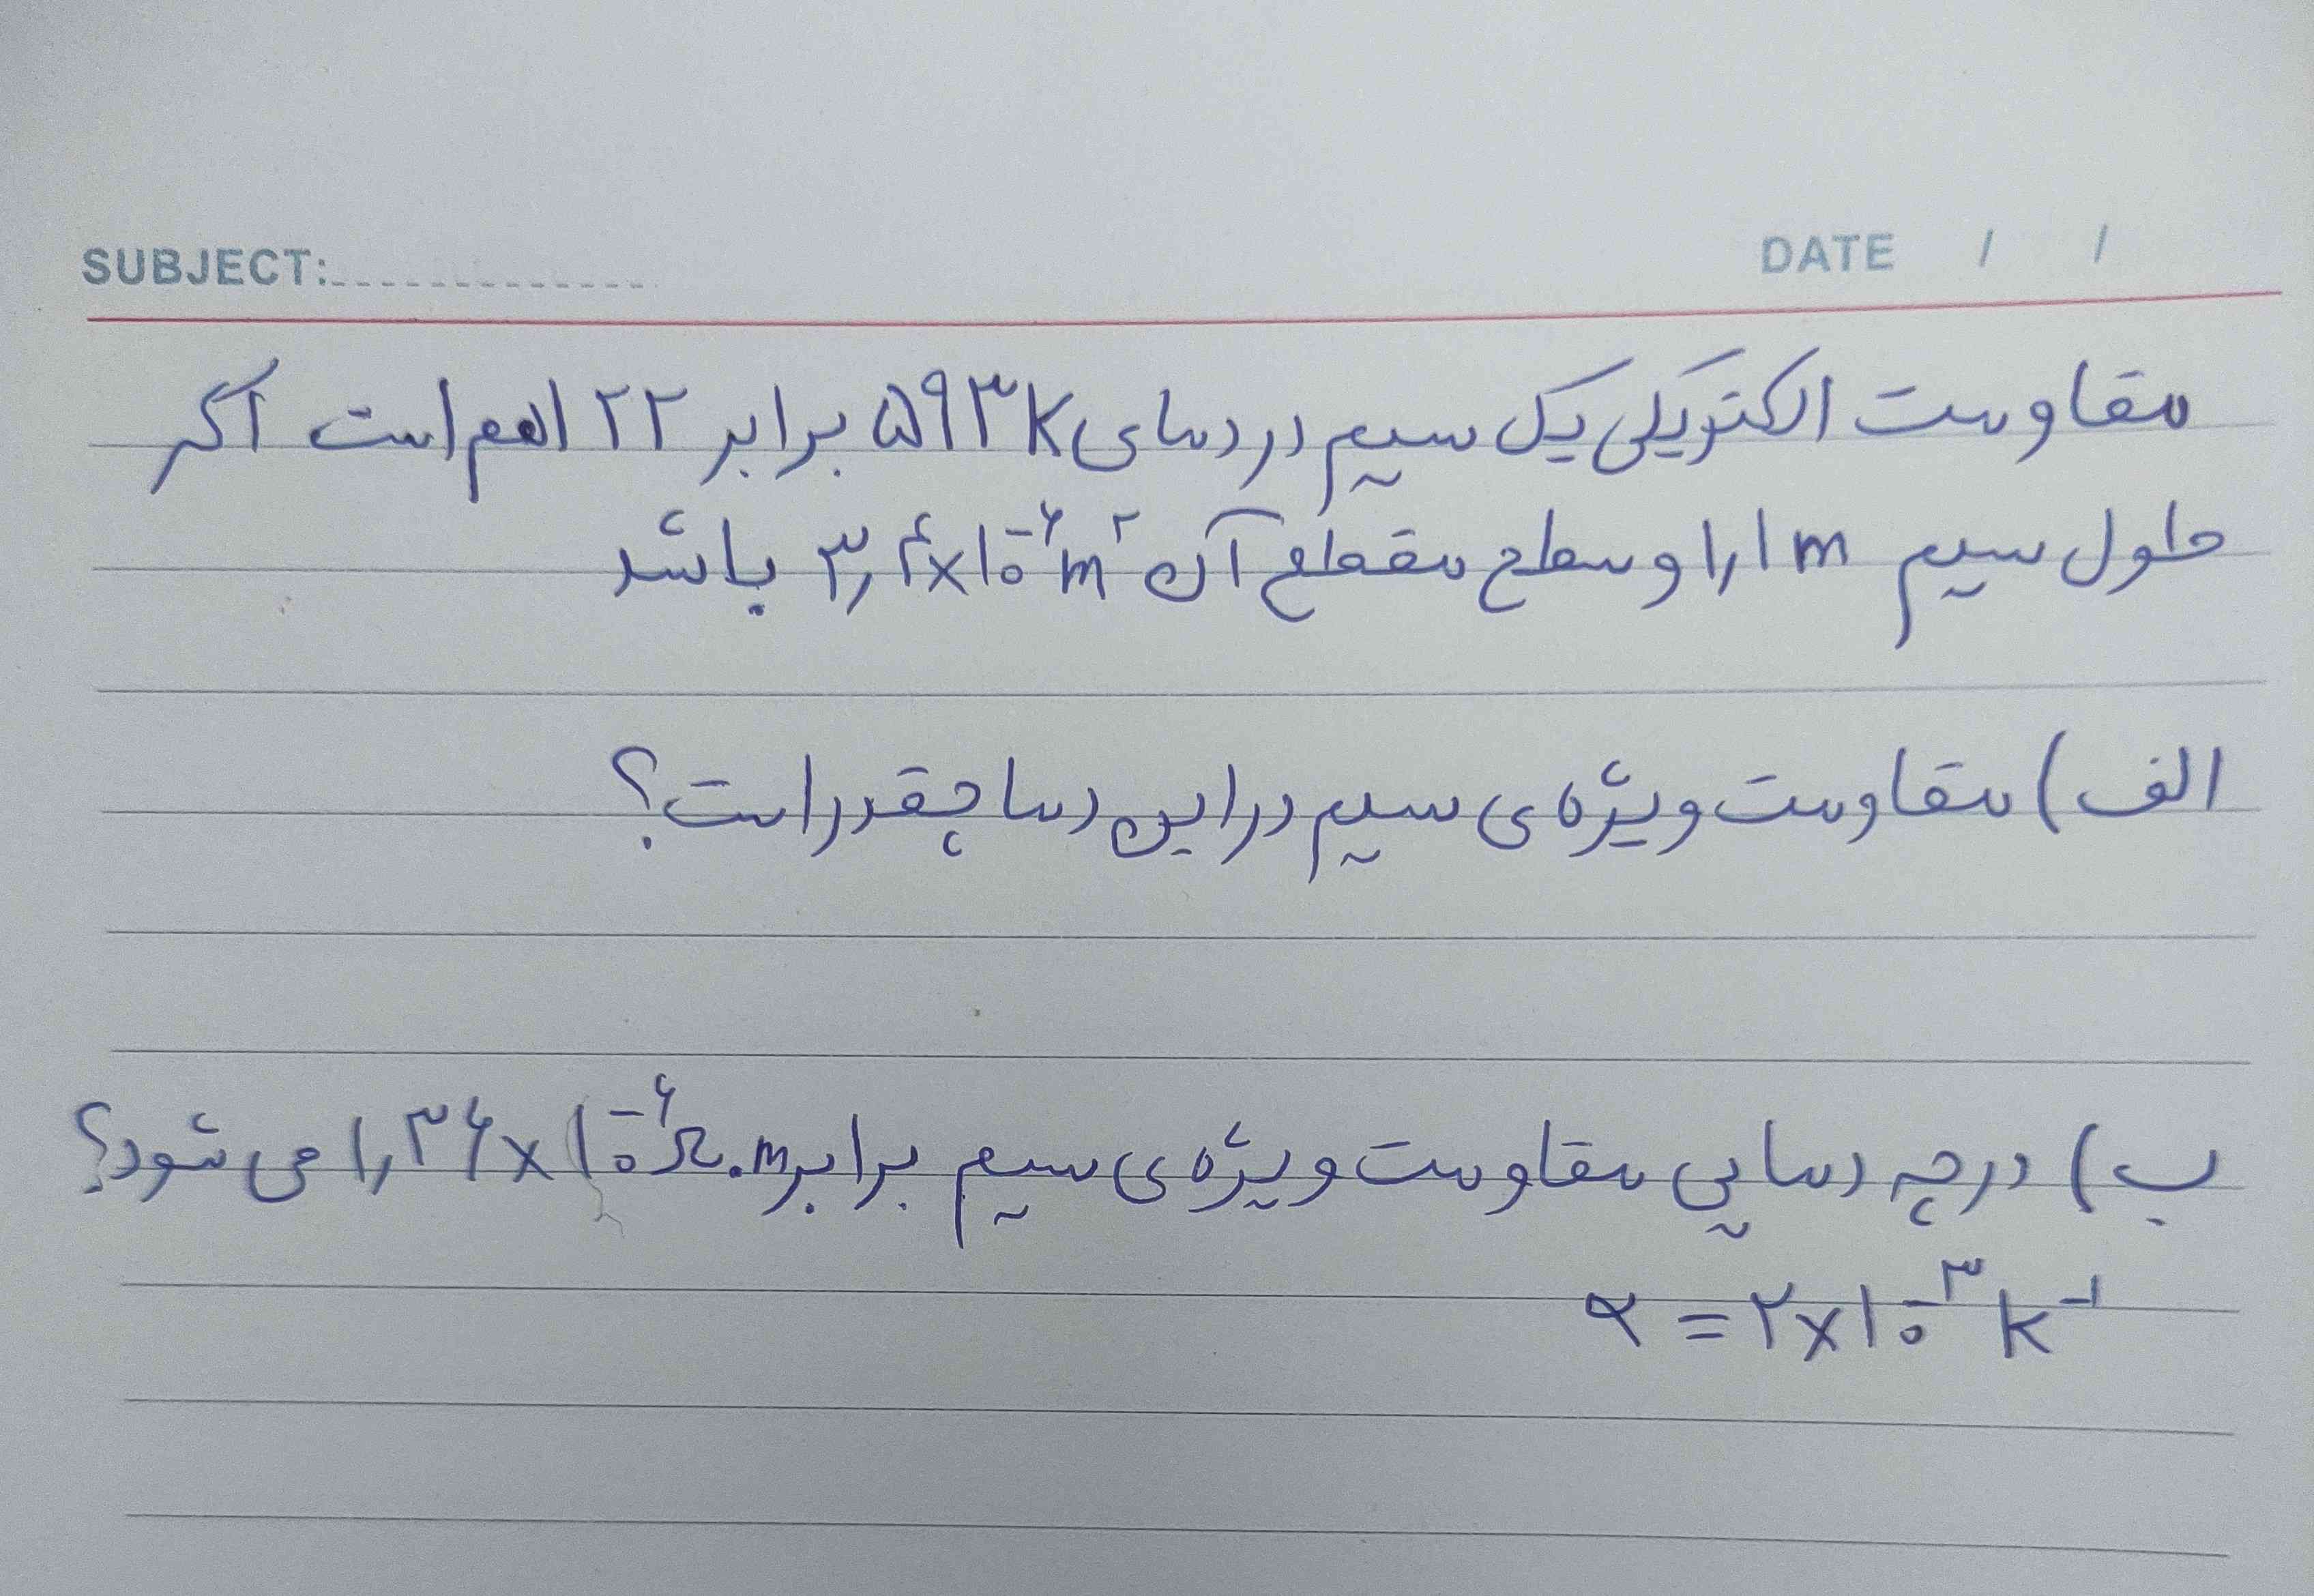 SUBJECT: DATE / /
مقاومت الکتریکی یک سیم در دمای ۵۹۳K برابر ۲۲ اهم است اگر
طول سیم ۱٫۱m و سطح مقطع آن ۳٫۴×۱۰⁻⁶m² باشد
الف) مقاومت ویژه‌ی سیم در این دما چقدر است؟
ب) در چه دمایی مقاومت ویژه‌ی سیم برابر ۱٫۳۶×۱۰⁻⁶Ω.m می شود؟
α = ۲×۱۰⁻³ K⁻¹